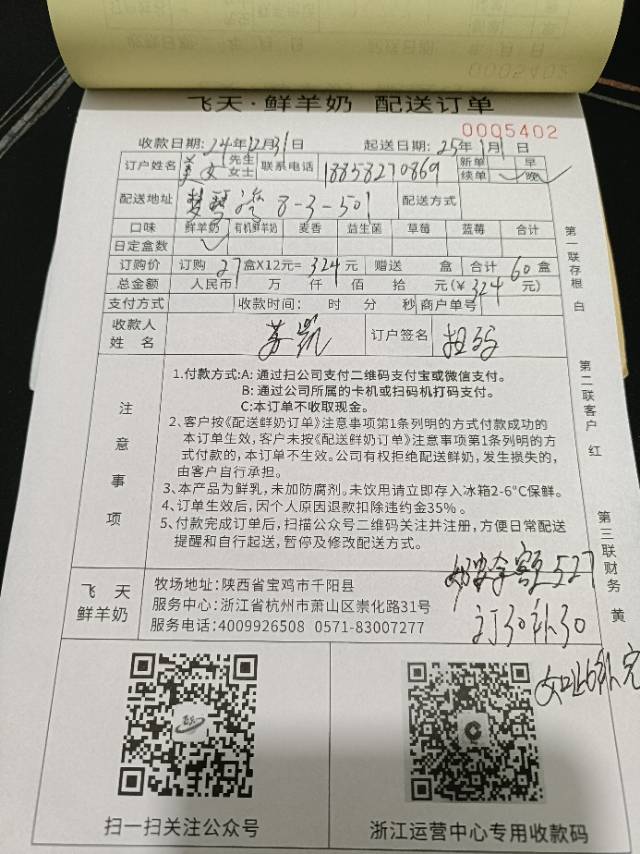 飞天·鲜羊奶 配送订单
0005402
收款日期: 24年12月31日 起送日期: 25年1月1日
订户姓名 美女 先生 女士 联系电话 18858270869 新单 续单 早 晚
配送地址 8-3-501 配送方式
口味 鲜羊奶 有机鲜羊奶 麦香 益生菌 草莓 蓝莓 合计
日定盒数
订购价 订购 27 盒X12元= 324 元 赠送 盒 合计 60 盒
总金额 人民币 万 仟 佰 拾 元(¥ 324 元)
支付方式 收款时间: 时 分 秒 商户单号
收款人姓名 苏凯 订户签名
注意事项
1.付款方式:A: 通过扫公司支付二维码支付宝或微信支付。
B: 通过公司所属的卡机或扫码机打码支付。
C:本订单不收取现金。
2、客户按《配送鲜奶订单》注意事项第1条列明的方式付款成功的
本订单生效，客户未按《配送鲜奶订单》注意事项第1条列明的方
式付款的，本订单不生效。公司有权拒绝配送鲜奶，发生损失的，
由客户自行承担。
3、本产品为鲜乳，未加防腐剂。未饮用请立即存入冰箱2-6°C保鲜。
4、订单生效后，因个人原因退款扣除违约金35%。
5、付款完成订单后，扫描公众号二维码关注并注册，方便日常配送
提醒和自行起送，暂停及修改配送方式。
527
订30补30
补完
飞天
鲜羊奶
牧场地址: 陕西省宝鸡市千阳县
服务中心: 浙江省杭州市萧山区崇化路31号
服务电话: 4009926508 0571-83007277
扫一扫关注公众号
浙江运营中心专用收款码
第一联存根 白
第二联客户 红
第三联财务 黄